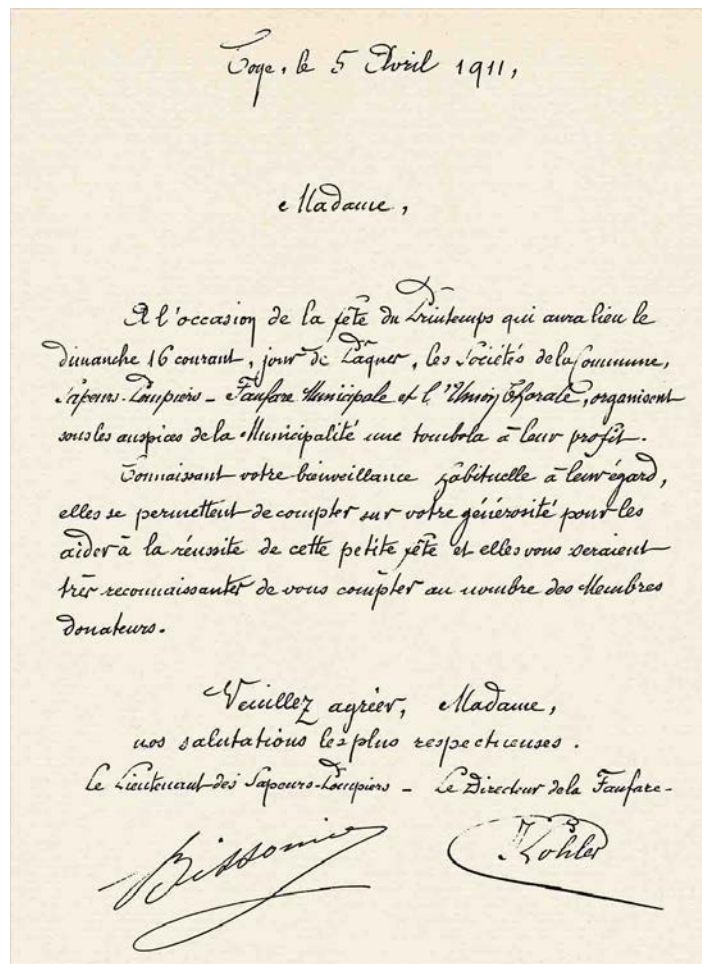 Coye, le 5 Avril 1911,
Madame,
A l'occasion de la fête du Printemps qui aura lieu le
dimanche 16 courant, jour de Pâques, les Sociétés de la Commune,
Sapeurs-Pompiers - Fanfare Municipale et l'Union Chorale, organisent
sous les auspices de la Municipalité une tombola à leur profit.
Connaissant votre bienveillance habituelle à leur égard,
elles se permettent de compter sur votre générosité pour les
aider à la réussite de cette petite fête et elles vous seraient
très reconnaissantes de vous compter au nombre des Membres
donateurs.
Veuillez agréer, Madame,
nos salutations les plus respectueuses.
Le Lieutenant des Sapeurs-Pompiers - Le Directeur de la Fanfare -
Kohler